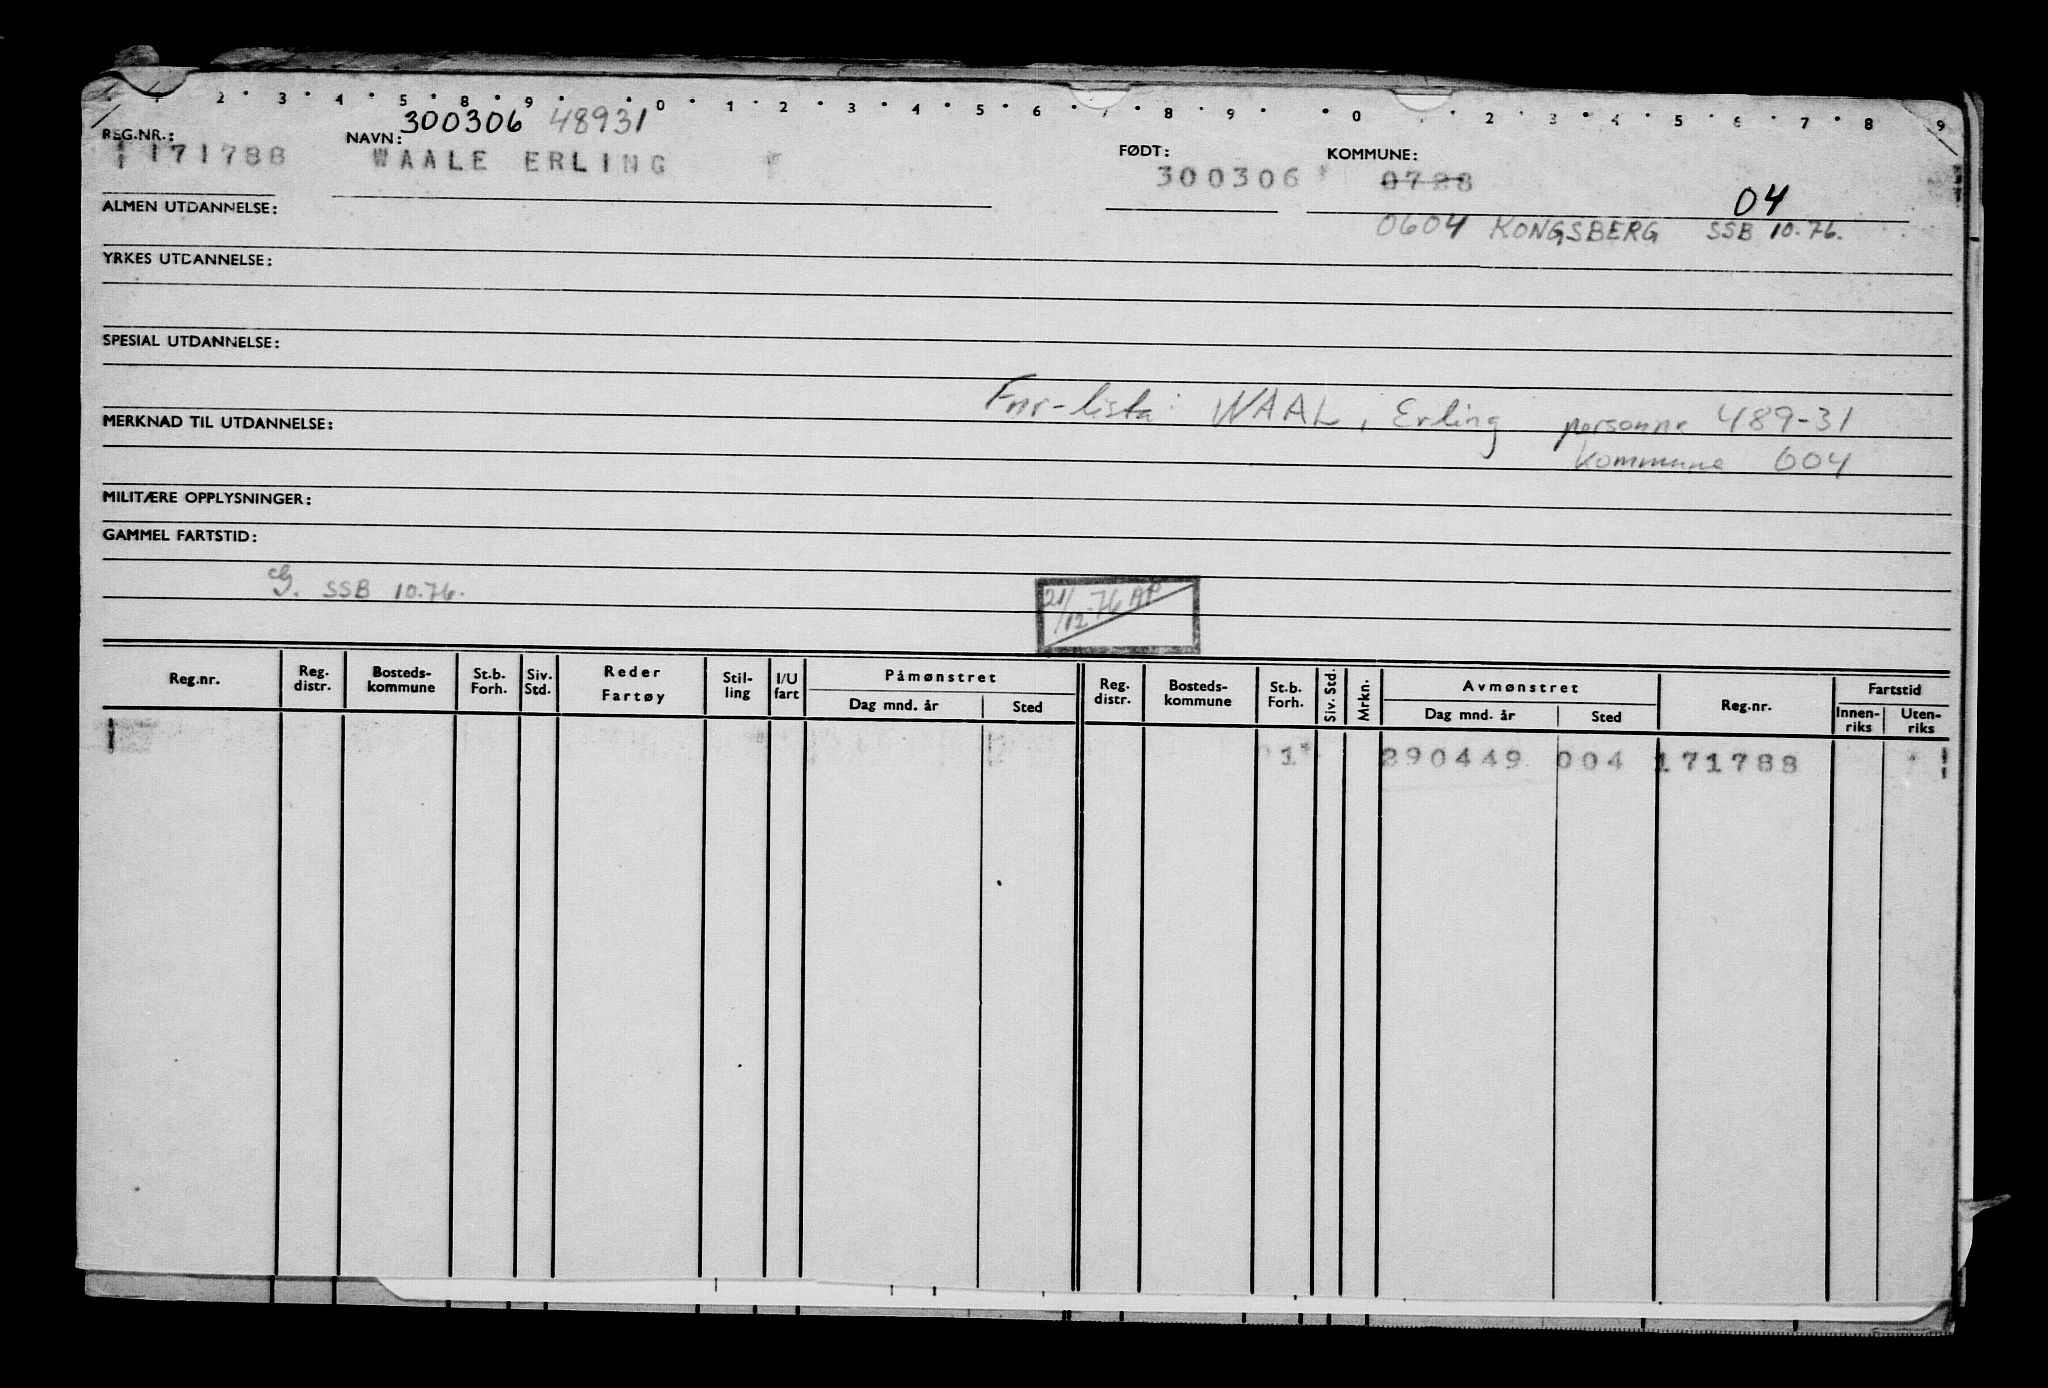 1 2 3 4 5 8 9 0 1 2 3 4 5 6 7 8 9 0 2 3 4 5 6 7 8 9
300306 48931
REG.NR.: NAVN: FØDT: KOMMUNE:
171788 WAALE ERLING 300306 0728
04
ALMEN UTDANNELSE:
0604 KONGSBERG SSB 10.76.
YRKES UTDANNELSE:
SPESIAL UTDANNELSE:
Fnr-lista: WAAL, Erling personnr 489-31
MERKNAD TIL UTDANNELSE:
kommune 604
MILITÆRE OPPLYSNINGER:
GAMMEL FARTSTID:
SSB 10.76.
21/12-76 AP
Reg.nr. Reg. distr. Bosteds-kommune St.b. Forh. Siv. Std. Reder Fartøy Stil-ling I/U fart Påmønstret Dag mnd. år Sted Reg. distr. Bosteds-kommune St.b. Forh. Siv. Std. Mrkn. Avmønstret Dag mnd. år Sted Reg.nr. Fartstid Innen-riks Uten-riks
1 290449 004 171788